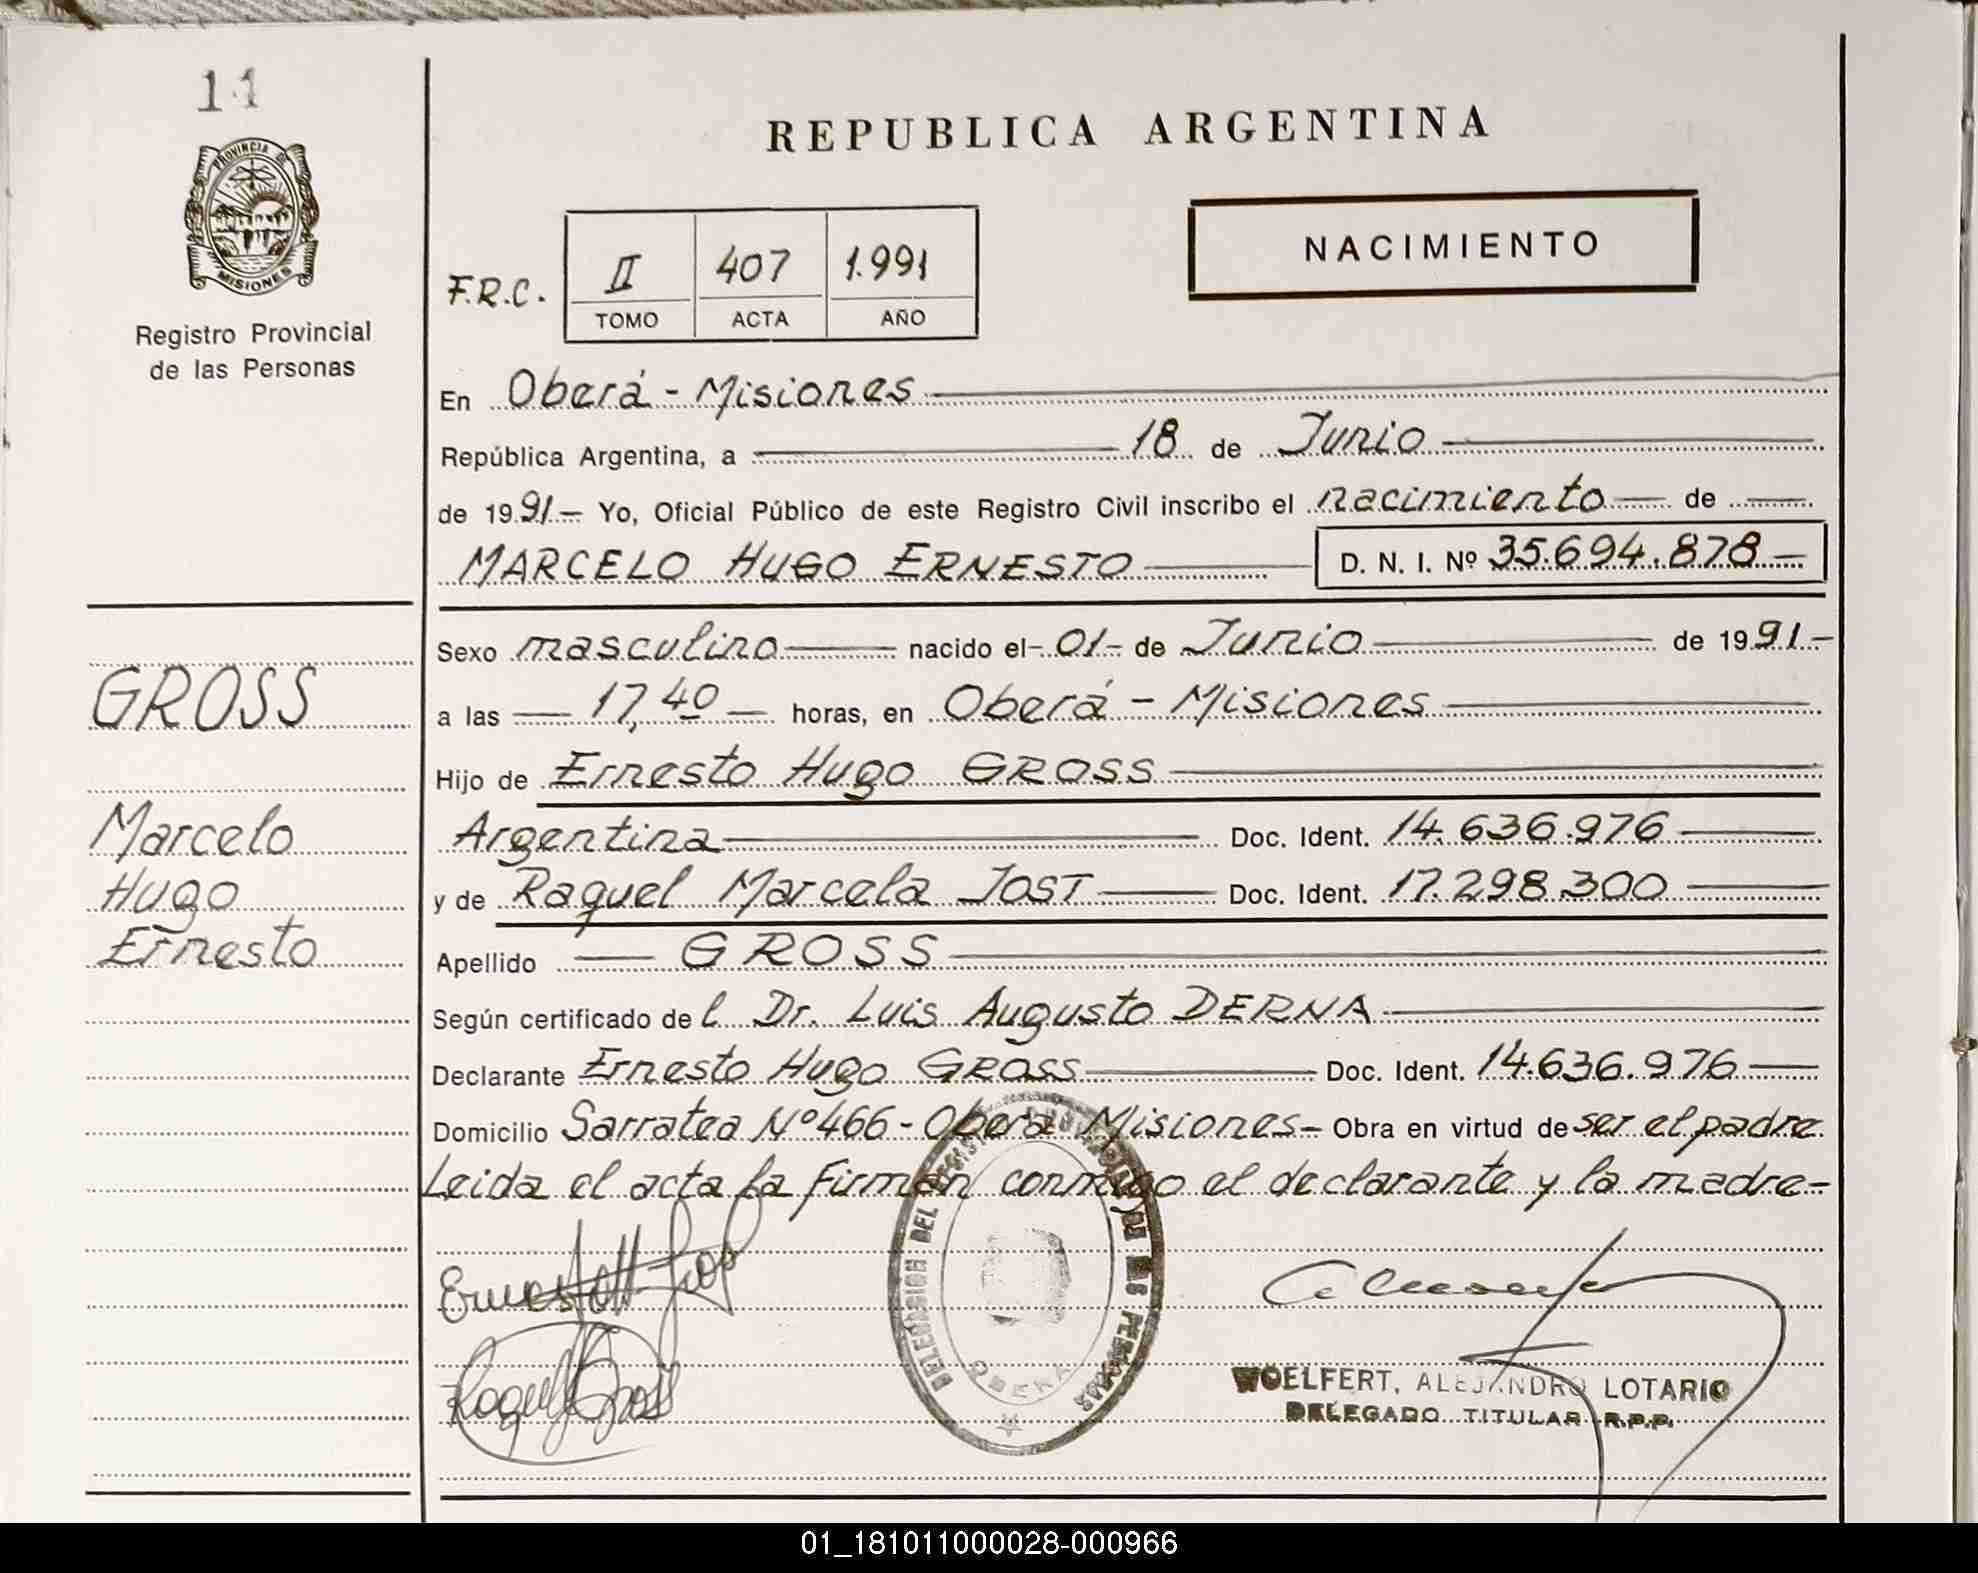 11
PROVINCIA DE
MISIONES
Registro Provincial
de las Personas
GROSS
Marcelo
Hugo
Ernesto
REPUBLICA ARGENTINA
NACIMIENTO
F.R.C. II 407 1.991
TOMO ACTA AÑO
En Oberá - Misiones
República Argentina, a 18 de Junio
de 1991.- Yo, Oficial Público de este Registro Civil inscribo el nacimiento de
MARCELO HUGO ERNESTO D. N. I. Nº 35.694.878.-
Sexo masculino nacido el - 01 - de Junio de 1991.-
a las 17,40 horas, en Oberá - Misiones
Hijo de Ernesto Hugo GROSS
Argentina Doc. Ident. 14.636.976
y de Raquel Marcela JOST Doc. Ident. 17.298.300
Apellido GROSS
Según certificado del Dr. Luis Augusto DERNA
Declarante Ernesto Hugo GROSS Doc. Ident. 14.636.976
Domicilio Sarratea Nº 466 - Oberá Misiones - Obra en virtud de ser el padre
Leida el acta la firman conmigo el declarante y la madre-
DELEGACION DEL REGISTRO PROVINCIAL DE LAS PERSONAS
OBERA
Raquel Gross
WOELFERT, ALEJANDRO LOTARIO
DELEGADO TITULAR R.P.P.
01_181011000028-000966